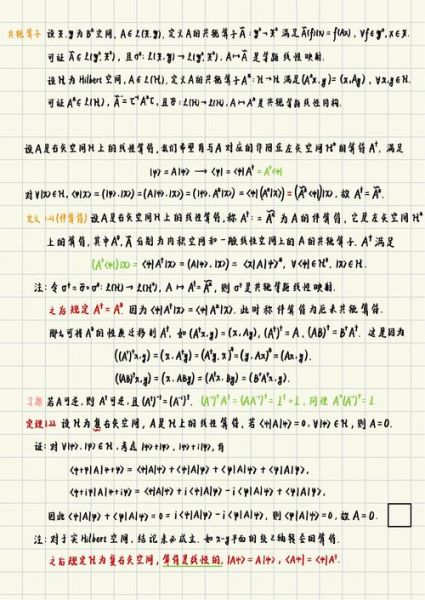 共轭算子 设 X, Y 为 B* 空间, A∈L(X,Y), 定义A的共轭算子 Ā: Y*→X* 满足 Ā(f)(x) = f(Ax), ∀f∈Y*, x∈X.
可证 Ā∈L(Y*,X*), 且 σ: L(X,Y)→L(Y*,X*), A↦Ā 是等距线性映射.
设 H 为 Hilbert 空间, A∈L(H), 定义A的共轭算子 Aᵃ: H→H 满足 (Aᵃx,y) = (x,Ay), ∀x,y∈H.
可证 Aᵃ∈L(H), 且 L(H)→L(H), A↦Aᵃ 是共轭等距线性同构.
设A是右矢空间H上的线性算符, 我们希望有与A对应的存用左矢空间H*的算符A†, 满足
|ψ⟩ = A|φ⟩ → ⟨ψ| = ⟨φ|A† = A†⟨φ|
定义1.21(伴算符) 设A是右矢空间H上的线性算符, 称 A† 为A的伴算符, 它是左矢空间H*
上的算符, 其中Aᵃ, Ā 分别为内积空间和一般线性空间上的A的共轭算子. A†满足
(A†⟨φ|)|x⟩ = ⟨φ|A†|x⟩ = (A|φ⟩, |x⟩) = ⟨x|A|φ⟩*, ∀⟨φ|∈H*, |x⟩∈H.
之后规定 A† = Aᵃ. 因为 ⟨φ|A†|x⟩ = ⟨φ|Aᵃ|x⟩. 此时称伴算符为厄米共轭算符.
那么可将Aᵃ的性质迁移到A†, 如 (A†x,y) = (x,Ay), (A†)† = A, (AB)† = B†A†. 这是因为
((A†)†x,y) = (x,A†y) = (A†y,x)* = (y,Ax)* = (Ax,y).
((AB)†x,y) = (x,ABy) = (A†x,By) = (B†A†x,y).
习题 若A可逆, 则A†可逆, 且 (A†)⁻¹ = (A⁻¹)†. (A⁻¹)†A† = (AA⁻¹)† = I† = I, 同理 A†(A⁻¹)† = I.
定理1.22 设H为复右矢空间, A是H上的线性算符, 若 ⟨ψ|A|ψ⟩ = 0, ∀|ψ⟩∈H, 则 A=0.
证: 对 ∀|φ⟩,|ψ⟩∈H, 考虑 |φ⟩+|ψ⟩, |φ⟩+i|ψ⟩, 有
⟨φ+ψ|A|φ+ψ⟩ = ⟨φ|A|φ⟩ + ⟨φ|A|ψ⟩ + ⟨ψ|A|φ⟩ + ⟨ψ|A|ψ⟩,
⟨φ+iψ|A|φ+iψ⟩ = ⟨φ|A|φ⟩ + i⟨φ|A|ψ⟩ - i⟨ψ|A|φ⟩ + ⟨ψ|A|ψ⟩,
因此 ⟨φ|A|ψ⟩ + ⟨ψ|A|φ⟩ = 0 = i⟨φ|A|ψ⟩ - i⟨ψ|A|φ⟩, 则 ⟨φ|A|ψ⟩ = 0, 故 A=0. □
注: 对于实Hilbert空间, 结论未必成立. 如 x-y平面的绕Z轴转90°的算符.
之后规定H为复右矢空间, 算符是线性的, |Aψ⟩ = A|ψ⟩, ⟨Aψ| = ⟨ψ|A†.